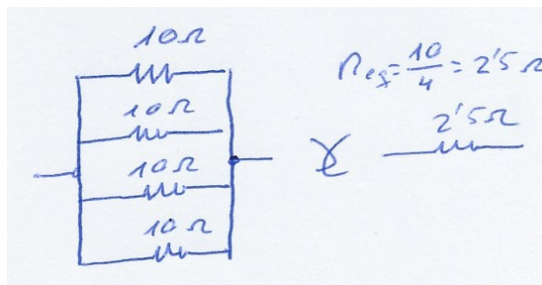 10Ω
10Ω
10Ω
10Ω
Req = 10/4 = 2'5 Ω
2'5Ω